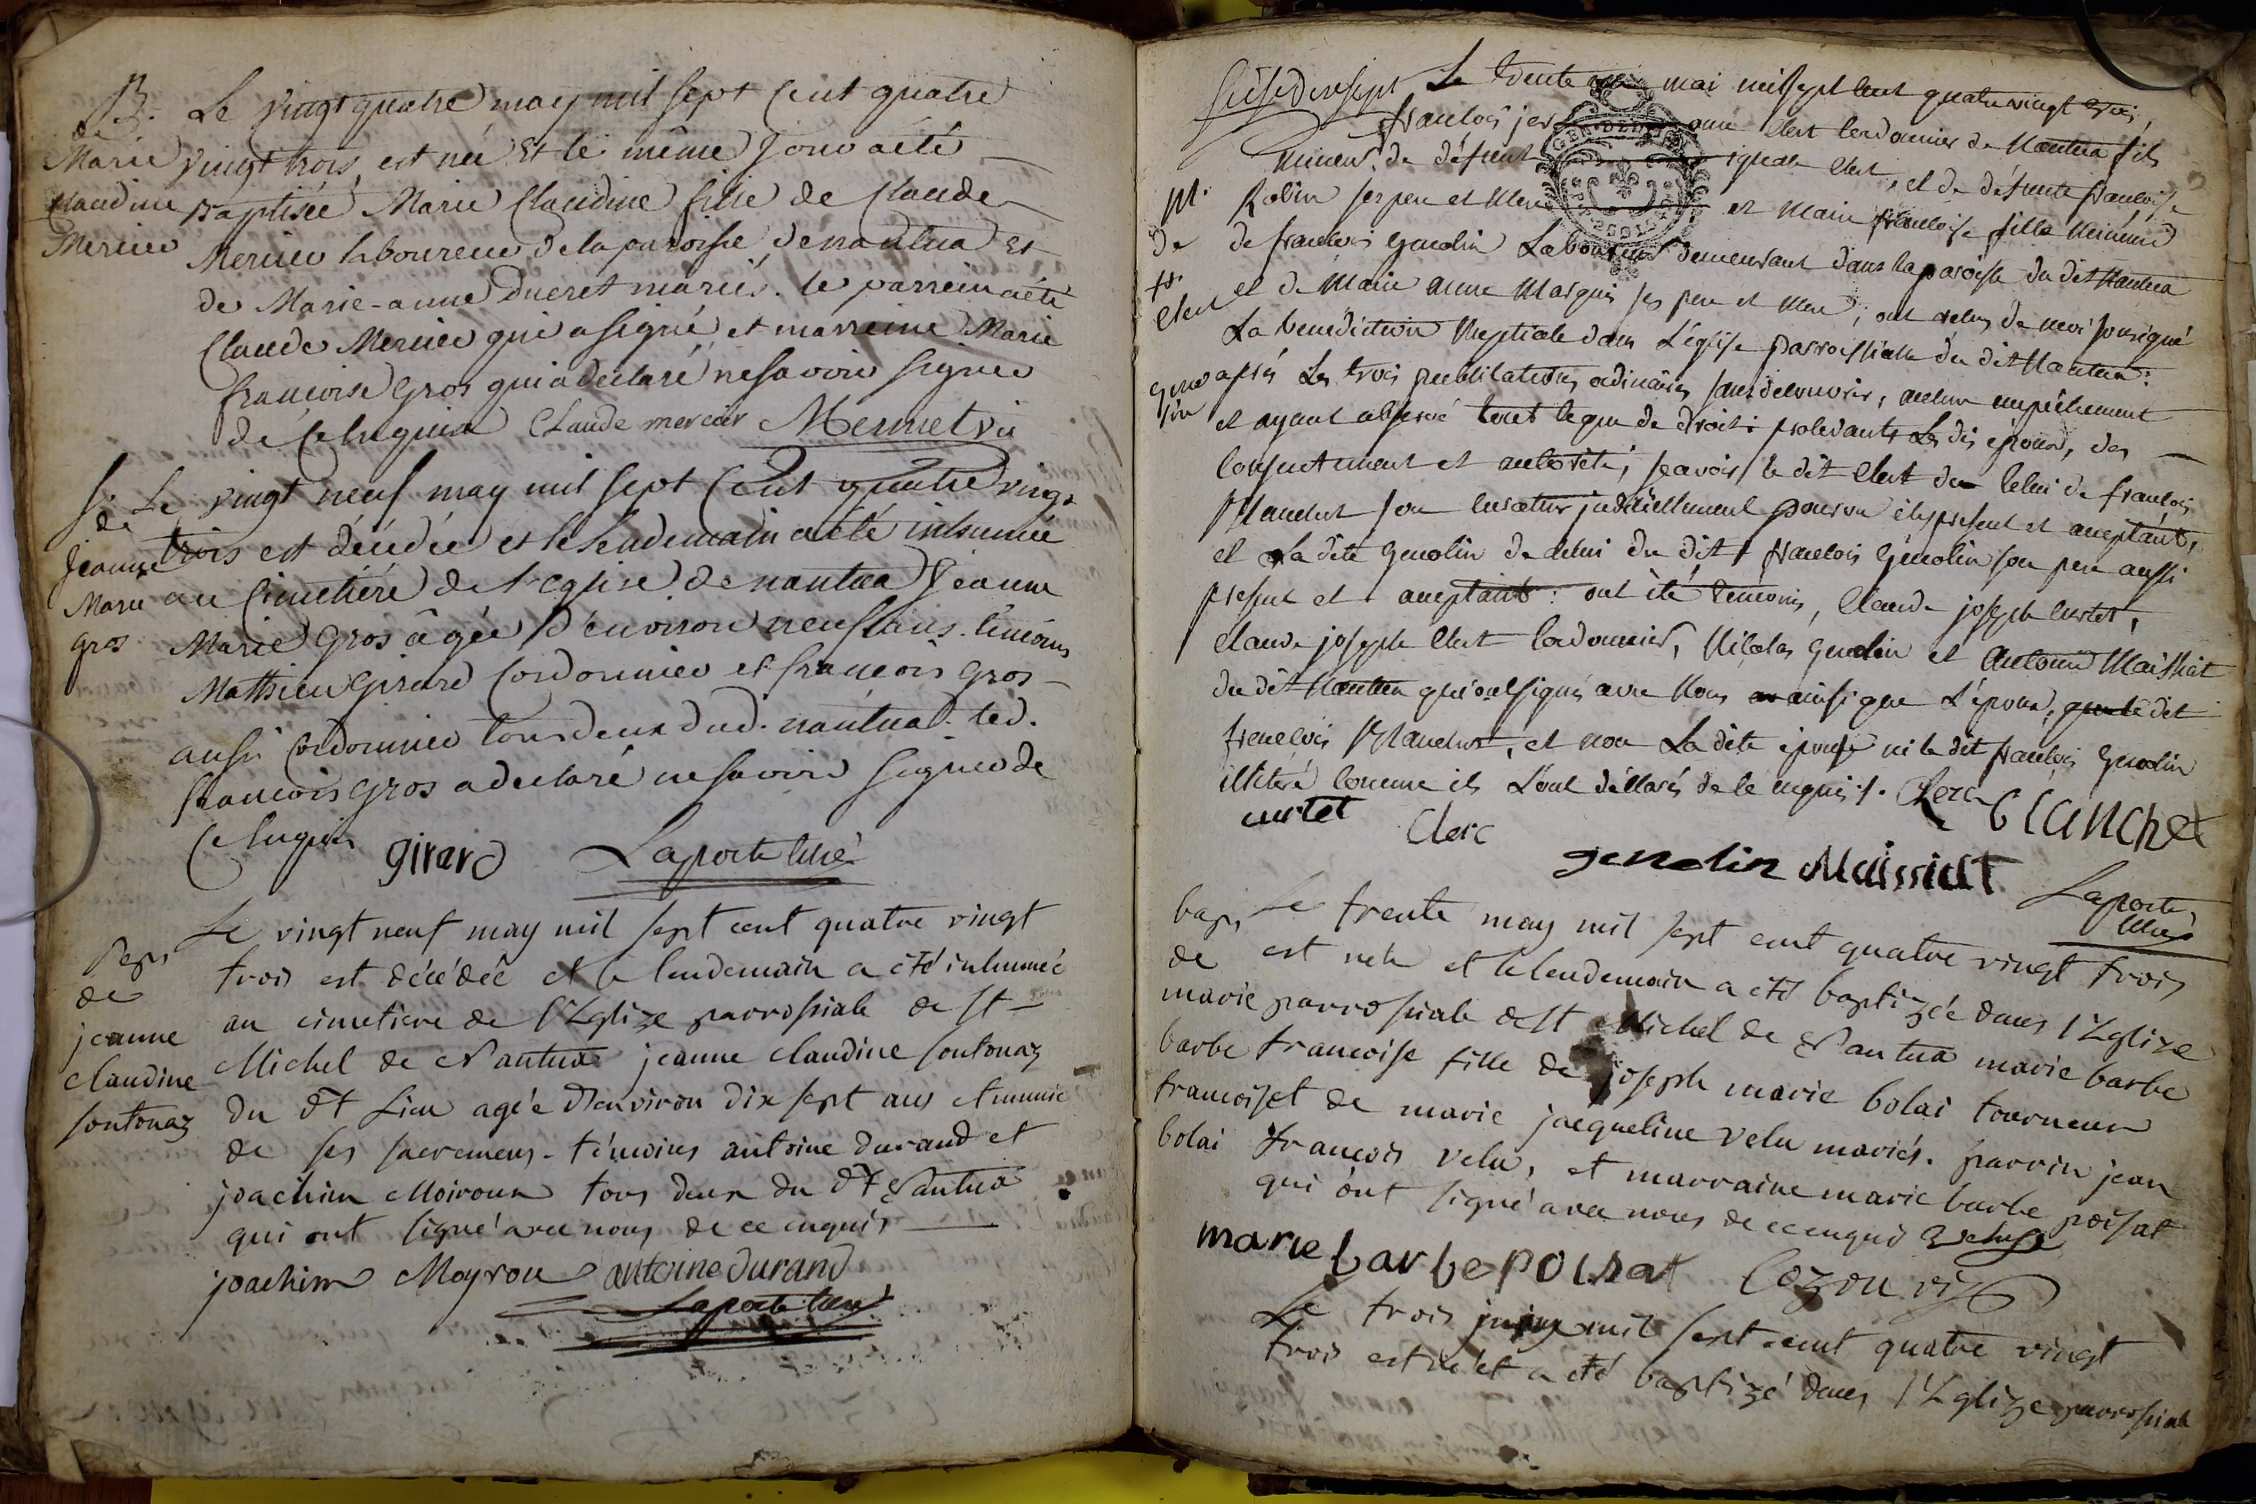 B. Le vingt quatre may mil sept cent quatre
de
Marie vingt trois, est née Et le même Jour a été
Claudine Baptisée Marie Claudine fille de Claude
Mercier Mercier laboureur de la paroisse de nantua Et
de Marie-anne Ducret mariés. le parrein a été
Claude Mercier qui a signé, et marreine Marie
françoise Gros qui a declaré ne savoir signer
de Ce Enquis Claude mercier Mermet vic
S. Le vingt neuf may mil sept Cent quatre vingt
de
Jeanne trois est décédée et le lendemain a été inhumée
Marie au Cimetiére de l'eglise de nantua Jeanne
gros Marie Gros âgée d'environ neuf ans. témoins
Mathieu Girard Cordonnier et françois Gros
aussi Cordonnier tous deux dud. nantua. led.
françois Gros a declaré ne savoir signer de
Ce Enquis
girard Laporte curé
Le vingt neuf may mil sept cent quatre vingt
Sep. trois est décédée et le lendemain a été inhumée
de au cimetiere de l'Eglize parrossiale de St
jeanne Michel de Nantua jeanne claudine sontonaz
claudine du dt Lieu agée d'environ dix sept ans et munie
sontonaz de ses sacremens. témoins antoine durand et
joachim Moiroux tous deux du dt Nantua
qui ont signé avec nous de ce enquis
joachim Moyrou antoine durand
Laporte curé
Le trente mai mil sept cent quatre vingt trois,
françois anne Clerc Cordonnier de Nantua fils
mineur de défunt Clerc, et de défunte françoise
M. Robin ses pere et Mere et Marie françoise fille Mineure
de de françois Genolin Laboureur demeurant dans la paroisse du dit Nantua
fs. et de Marie Anne Marquis ses pere et Mere, ont reçus de moi soussigné
Clerc
La benediction Nuptiale dans L'église parroissialle du dit Nantua:
Geno après Les trois publications ordinaires sans decouvrir, aucun empêchement
lin
et ayant observé tout ce que de droit: procedants Les dits époux, des
consentement et autorité, sçavoir le dit Clerc de Celui de françois
Blanchet son curateur judiciellement pourvu icy present et acceptant,
et la dite Genolin de celui du dit françois Genolin son pere aussi
present et acceptant: ont été temoins, Claude joseph curtet,
claude joseph Clerc Cordonnier, Nicolas Genolin et Antoine Maissiat
du dit Nantua qui ont signés avec Nous ainsi que L'époux, dit
françois Blanchet, et non La dite épouse ni le dit françois Genolin
illiteré comme ils L'ont déclarés de ce enquis. Clerc Blanchet
curtet Clerc
genolin Maissiat
Laporte
curé
bap. Le trente may mil sept cent quatre vingt trois
de est née et le lendemain a été baptizée dans l'Eglize
marie parrossiale de St Michel de Nantua marie barbe
barbe francoise fille de joseph marie bolai tourneur
francoise et de marie jacqueline velu mariés. parrin jean
bolai francois velu, et marraine marie barbe poisat
qui ont signé avec nous de ce enquis
marie barbe poisat Cozon vic
Le trois juin mil sept cent quatre vingt
trois est né et a été baptizé dans l'Eglize parrossiale